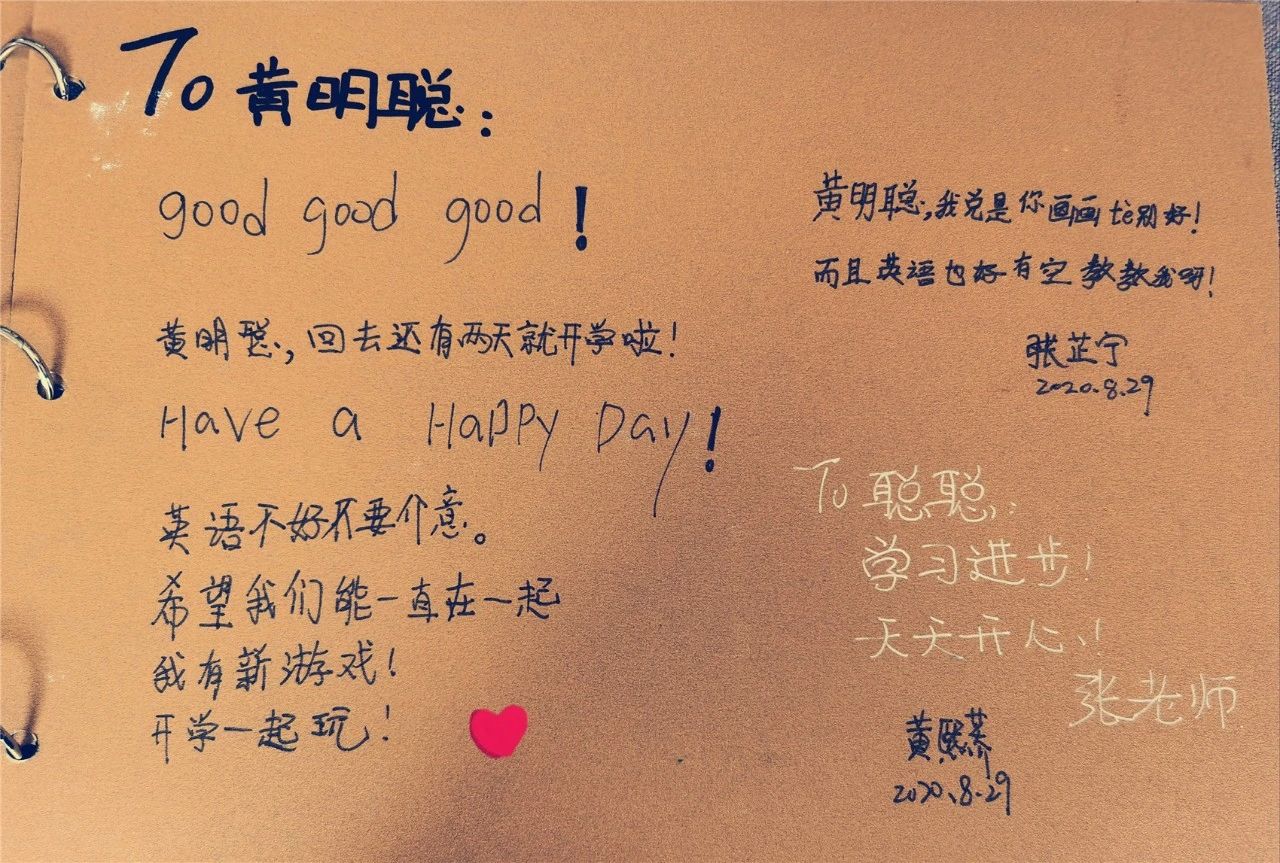 To 黄明聪:
good good good!
黄明聪,回去还有两天就开学啦!
Have a Happy Day!
英语不好不要介意。
希望我们能一直在一起
我有新游戏!
开学一起玩!
黄熙荞
2020.8.29
黄明聪,我觉是你画画te别好!
而且英语也好有空教教我呀!
张芷宁
2020.8.29
To 聪聪:
学习进步!
天天开心!
张老师